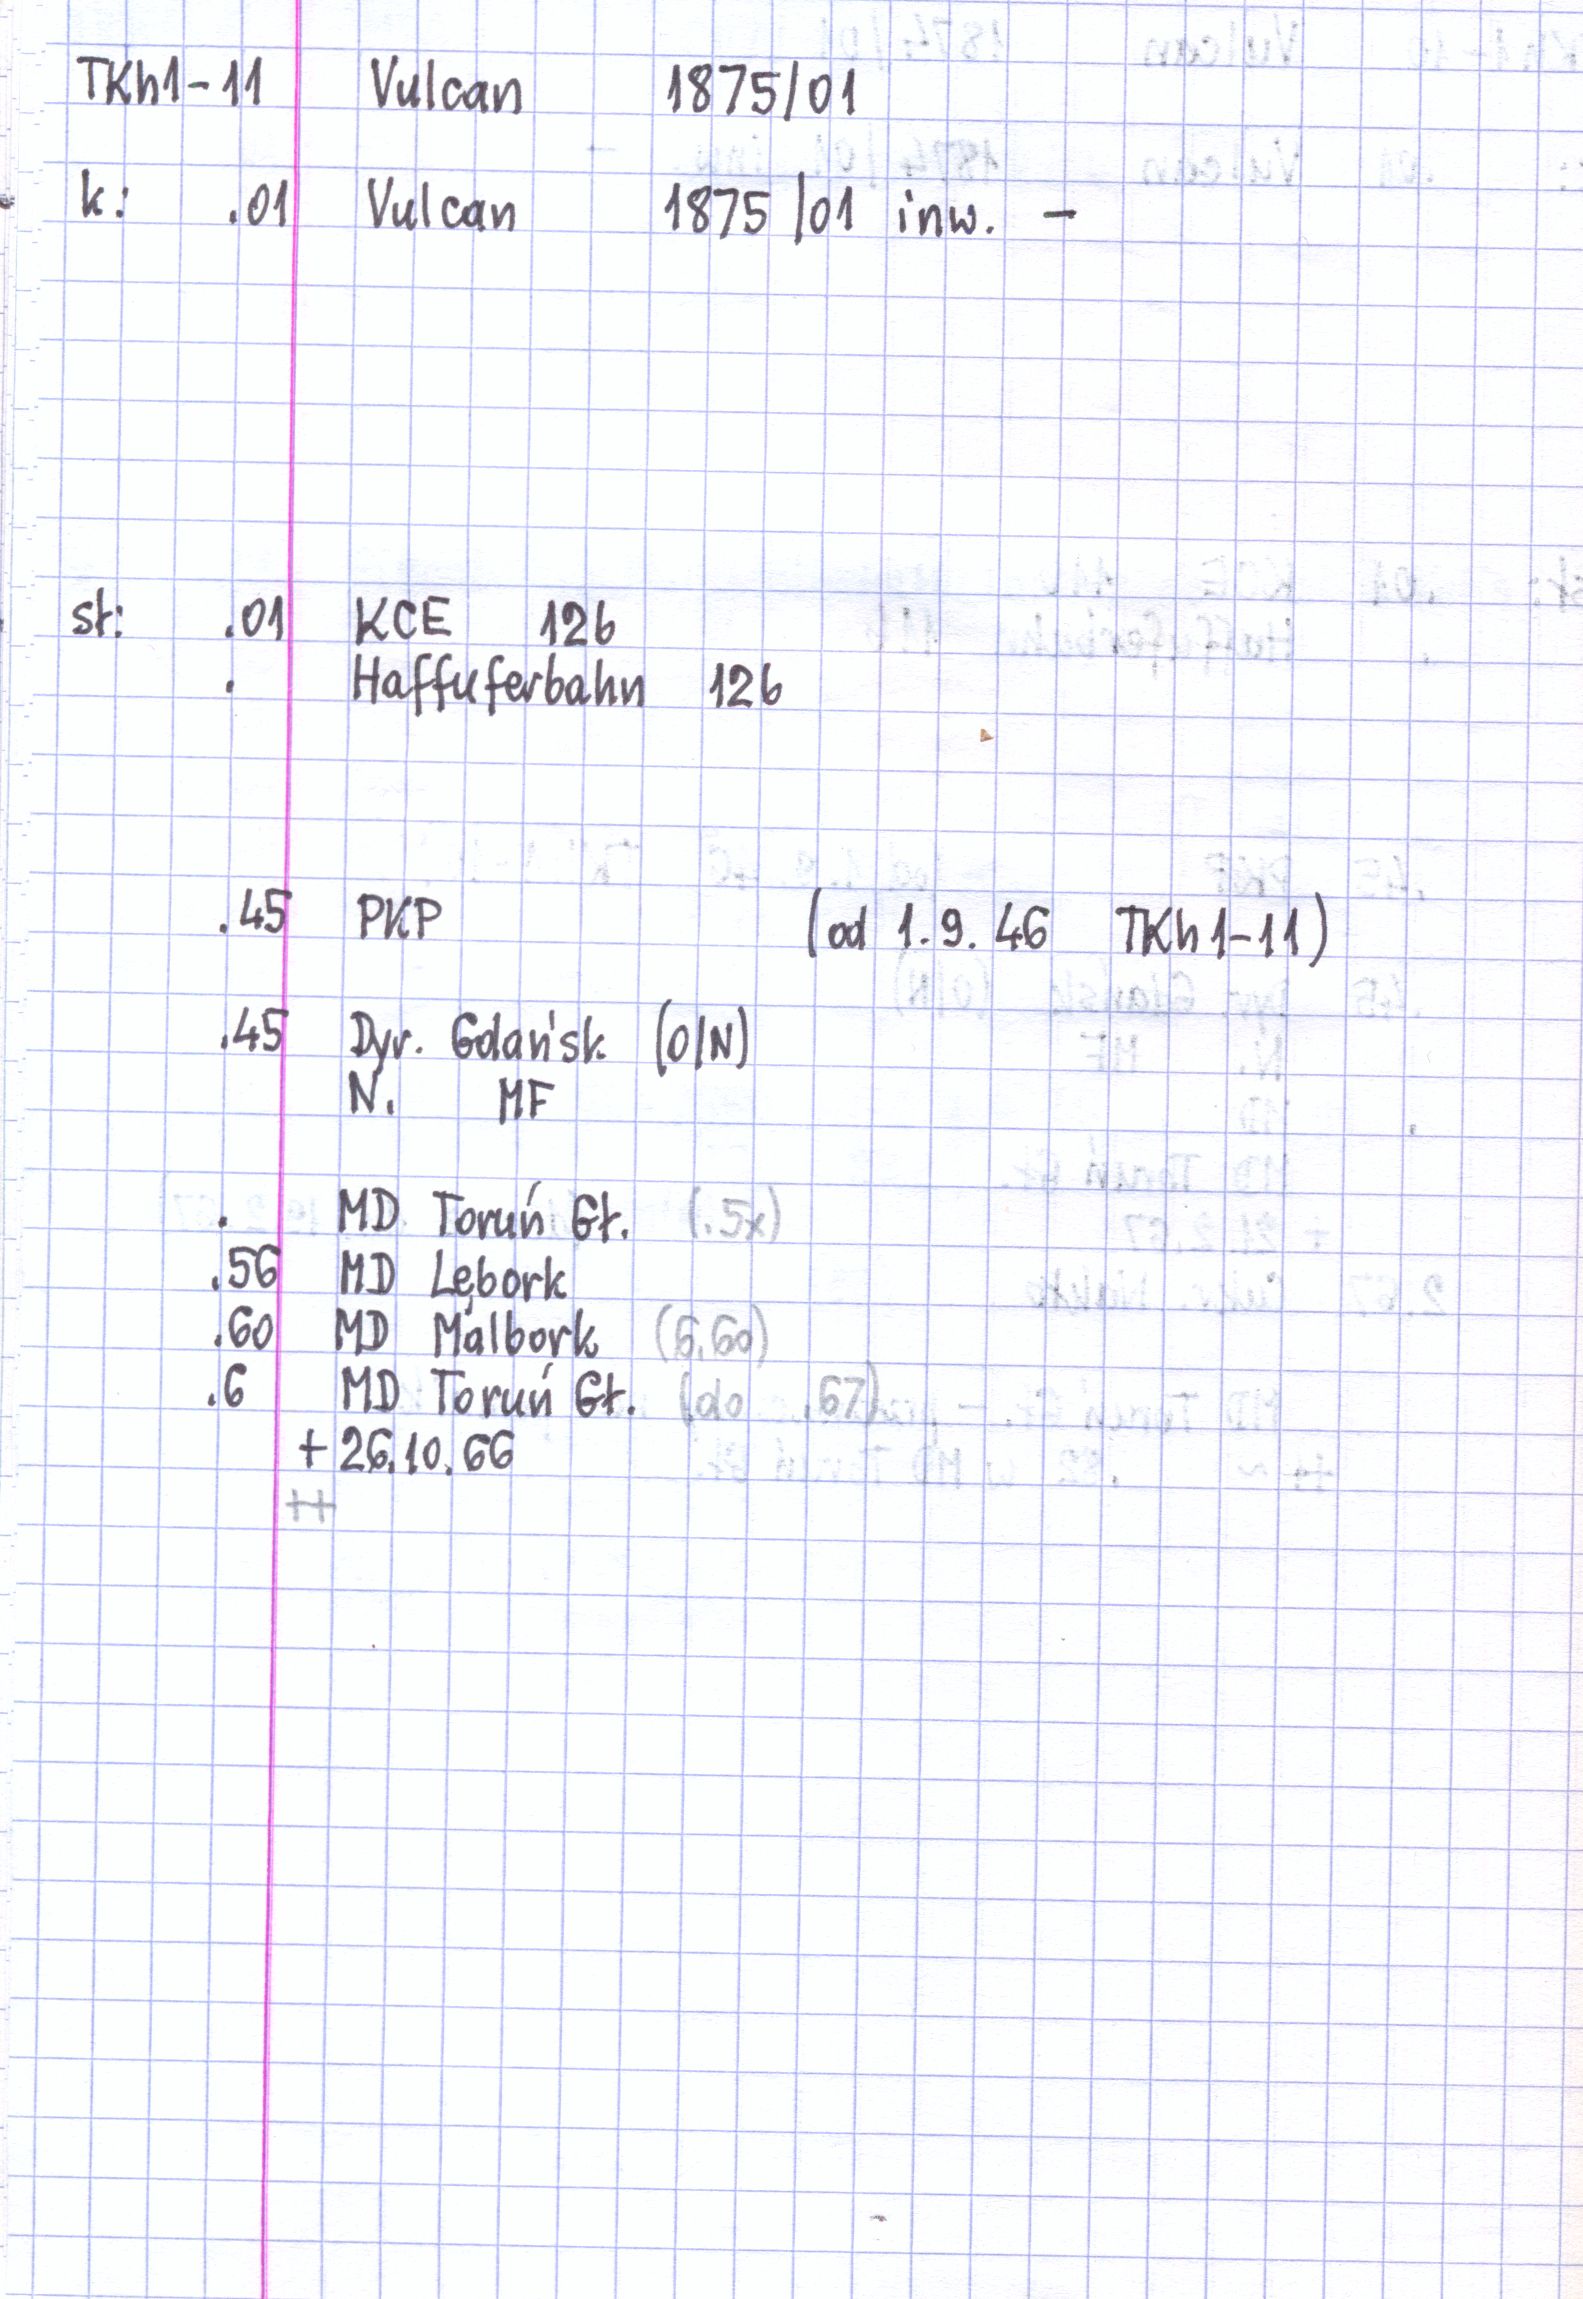 TKh1-11 Vulcan 1875/01
k: .01 Vulcan 1875/01 inw. -
st: .01 KCE 126
. Haffuferbahn 126
.45 PKP (od 1.9.46 TKh1-11)
.45 Dyr. Gdańsk (O/N)
N. MF
. MD Toruń Gł. (.5x)
.56 MD Lębork
.60 MD Malbork (6.60)
.6 MD Toruń Gł. (do .67)
+ 26.10.66
++